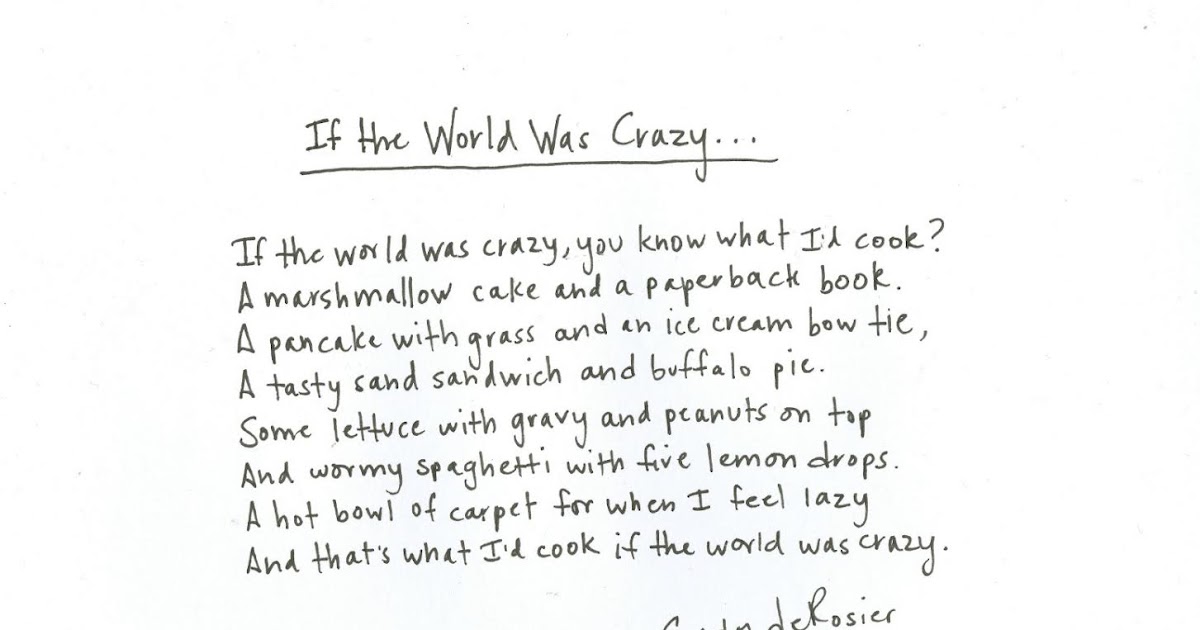 If the World Was Crazy...
If the world was crazy, you know what I'd cook?
A marshmallow cake and a paperback book.
A pancake with grass and an ice cream bow tie,
A tasty sand sandwich and buffalo pie.
Some lettuce with gravy and peanuts on top
And wormy spaghetti with five lemon drops.
A hot bowl of carpet for when I feel lazy
And that's what I'd cook if the world was crazy.
deRosier